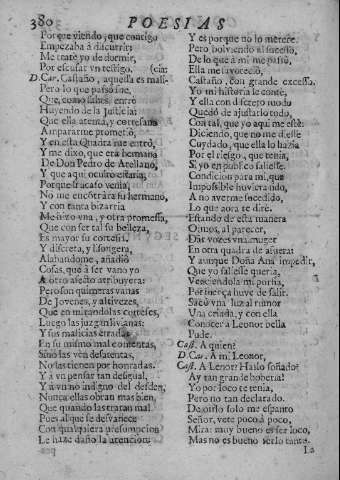 380
POESIAS
Porque viendo, que contigo
Empezaba à discurrir:
Me trate yo de dormir,
Por escusar vn testigo. (cia:
D.Car. Castaño, aquessa es mali-
Pero lo que passò fue,
Que, como sabes, entrò
Huyendo de la Justicia:
Que ella atenta, y cortesana
Ampararme prometiò,
Y en esta Quadra me entrò,
Y me dixo, que era hermana
De Don Pedro de Arellano,
Y que aqui oculto estaria;
Porque si acaso venia,
No me encontràra su hermano,
Y con tanta bizarria
Me hizo vna, y otra promessa,
Que con ser tal su belleza,
Es mayor su cortesia.
Y discreta, y lisongera,
Alabandome, añadiò
Cosas, que à ser vano yo
A otro afecto atribuyera:
Pero son quimeras vanas
De Jovenes, y altivezes,
Que en mirandolas corteses,
Luego las juzgan livianas:
Y sus malicias erradas
En su mismo mal contentas,
Sino las vèn desatentas,
No las tienen por honradas.
Y à vn pensar tan desigual,
Y à vn no indigno del desden,
Nunca ellas obran mas bien,
Que quando las tratan mal.
Pues al que se desvanece
Con qualquiera presumpcion
Le haze daño la atencion:
Y es porque no lo merece.
Pero bolviendo al sucesso,
De lo que à mi me passò,
Ella me favoreciò,
Castaño, con grande excesso.
Yo mi historia le contè,
Y ella con discreto modo
Quedò de ajustarlo todo,
Con tal, que yo aqui me estè:
Diciendo, que no me diesse
Cuydado, que ella lo hazia
Por el riesgo, que tenia,
Si yo en publico saliesse.
Condicion para mi, que
Impossible huviera sido,
A no averme sucedido,
Lo que aora te dirè.
Estando de esta manera
Oimos, al parecer,
Dar vozes vna muger
En otra quadra de afuera:
Y aunque Doña Ana impedir,
Que yo saliesse queria,
Venciendola mi porfia,
Por fuerça huve de salir.
Sacò vna luz al rumor
Vna criada, y con ella
Conocer à Leonor bella
Pude.
Cast. A quien?
D.Car. A mi Leonor,
Cast. A Lenor? Haslo soñado?
Ay tan grande boberia!
Yo por loco te tenia,
Pero no tan declarado.
De oirlo solo me espanto
Señor, vete poco à poco,
Mira: muy bueno es ser loco,
Mas no es bueno serlo tanto.
La